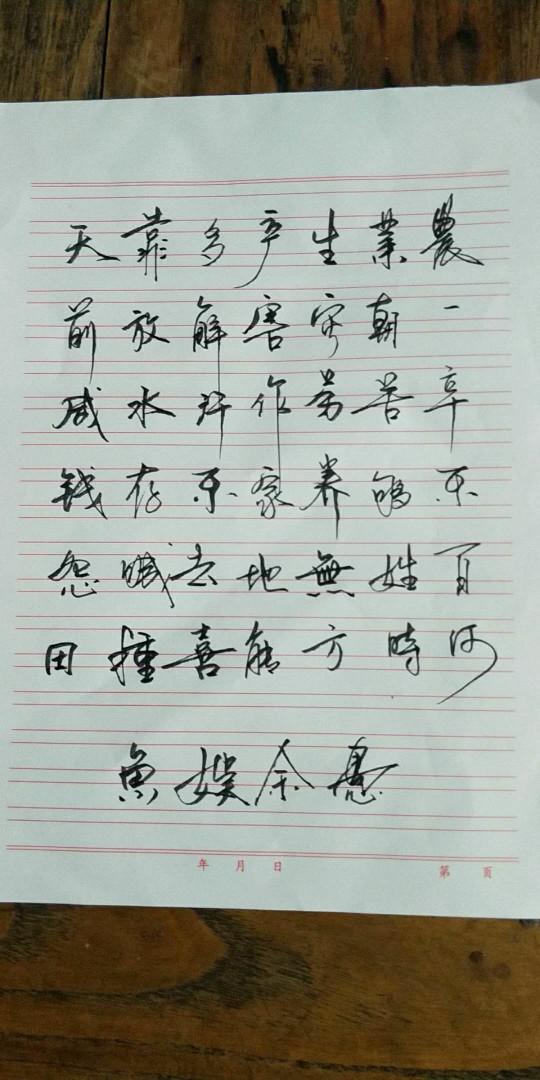 農業生产多靠天
一朝害解放前
辛苦劳作汗水咸
不够养家不存钱
百姓無地去喊怨
何時方能喜種田
愚余娱魚
年 月 日 第 页